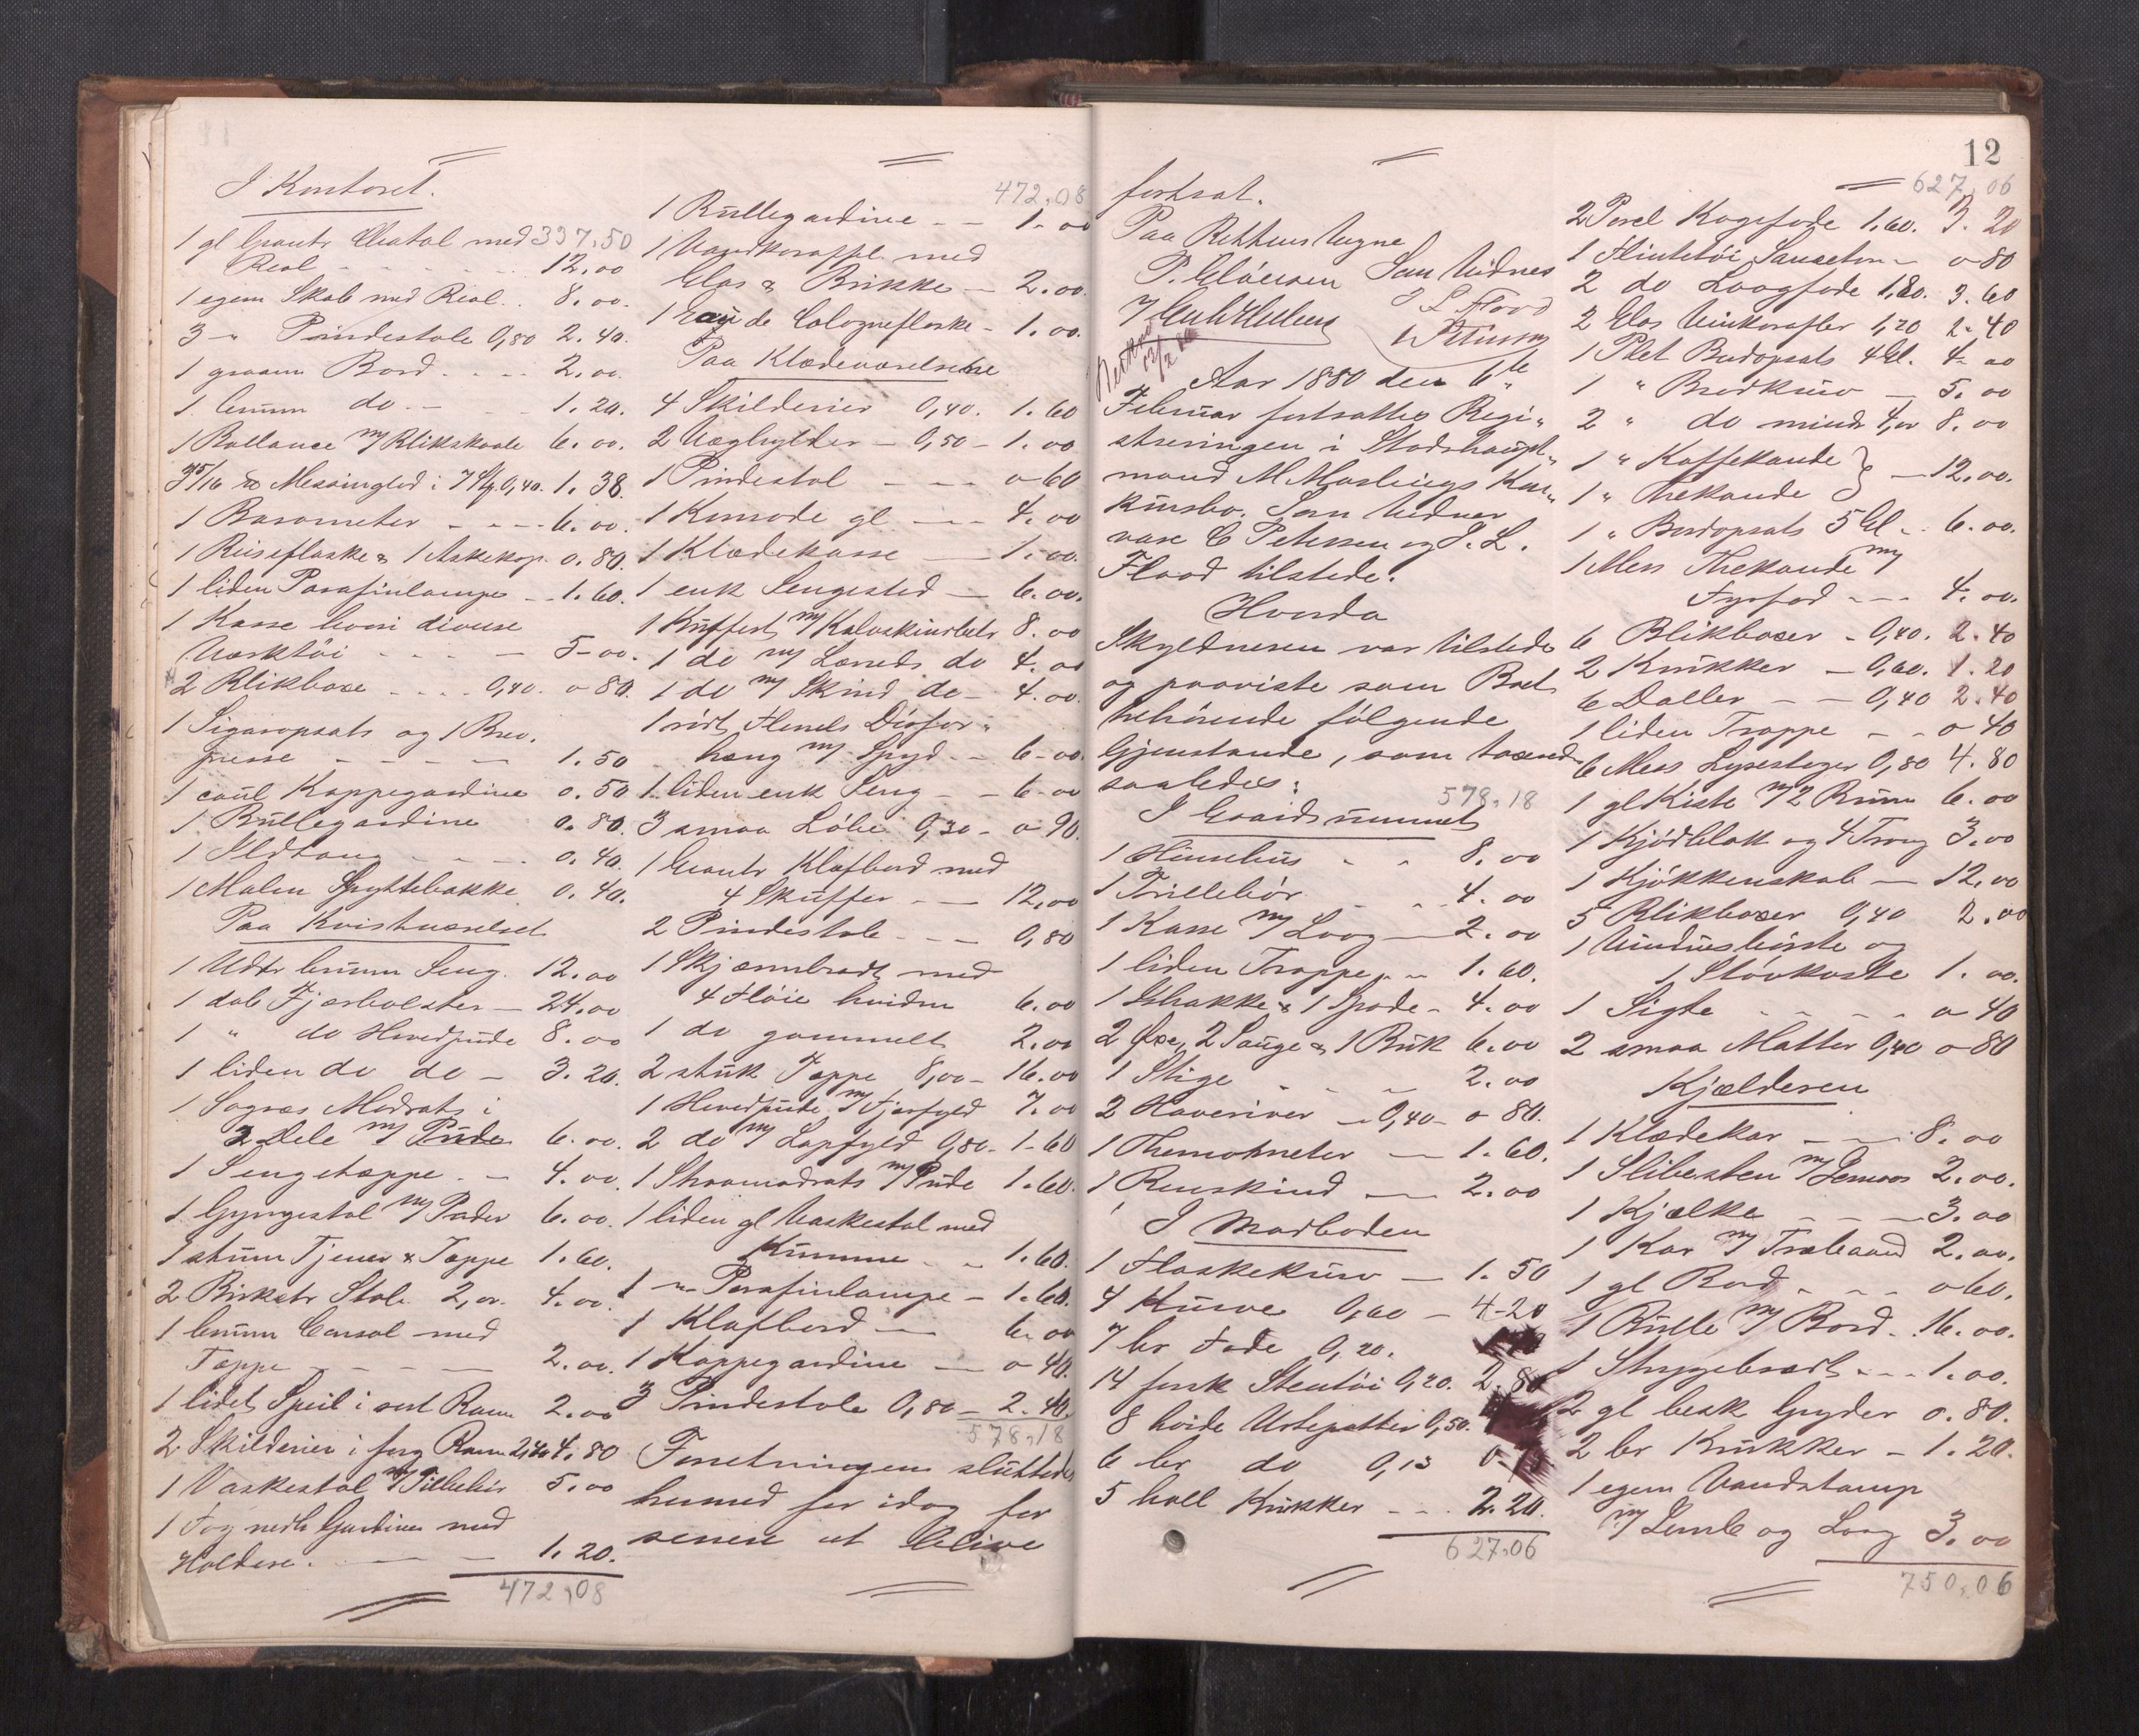 I Kontoret.
1 gl malt med 337,50
Reol 12,00
1 egem Skab med Reol 8,00.
3 " Pindestole 0,80 2.40.
1 graam Bord 2,00.
1 brunm do 1.20.
1 Ballance m/ Blikskaale 6.00.
Messinglod i 7 St 0,40. 1.38.
1 Barometer 6.00.
1 Reiseflaske & 1 Askekop. 0.80.
1 liden Parafinlampe 1.60.
1 Kasse hvori diverse
Værktöi 5-00.
2 Blikboxe 0,40. 0 80.
1 Sigaropsats og 1 Brev.
presse 1.50
1 coul Kappegardine 0.50
1 Rullegardine 0.80.
1 Ildtang 0.40.
1 Malen Spyttebakke 0.40.
Paa Kvistværelset
1 Udtr brunm Seng. 12.00
1 dob Fjærbolster 24.00
1 " do Hovedpude 8.00
1 liden do do 3.20.
1 Søgræs Madrats i
2 Dele m/ Pude 6.00.
1 Sengetæppe 4.00.
1 Gyngestol m/ Puder 6.00.
1 stum Tjener & Tæppe 1.60.
2 Birketr Stole 2,00. 4.00.
1 brunm Consol med
Tæppe 2.00.
1 lidet Speil i sort Ramme 2.00
2 Skilderier i forg Ramme 2,40 4.80
1 Vaskestol m/ Tilbehör 5.00
1 Fag Gardiner med
Holdere. 1.20.
472,08
472,08
1 Rullegardine 1.00
1 Vandkaraffel med
Glas & Brikke 2.00.
1 Eau de Cologneflaske 1.00.
Paa Klædeværelserne
4 Skilderier 0,40. 1.60
2 Væghylder 0,50 1.00
1 Pindestol 0 60
1 Komode gl 4.00
1 Klædekasse 1.00.
1 enk Sengested 6.00.
1 Kuffert m/ Kalveskindbetr 8.00
1 do m/ Lærreds do 4.00
1 do m/ Skind do 4.00.
1 rödt Flonels Dörfor-
hæng m/ Spyd 6-00.
1 liden enk Seng 6-00
3 smaa Löbere 0,30 0 90.
1 Klafbord med
4 Skuffer 12,00
2 Pindestole 0,80
1 Skjærmbradt med
4 Flöie hvidm 6.00
1 do gammelt 2.00
2 stuk Tæppe 8,00 16.00
1 Hovedpude m/ Fjærfyld 7.00
2 do m/ Lapfyld 0,80. 1-60
1 Straamadrats m/ Pude 1.60.
1 liden gl Vaskestol med
Kumme 1.60.
1 " Parafinlampe 1.60.
1 Klafbord 6.00
1 Kappegardine 0 40.
3 Pindestole 0,80 2.40.
578,18
Forretningen sluttedes
hermed for idag for
senere at blive
12
fortsat.
Paa Rettens Vegne
Som Vidner
J L Flood
Aar 1880 den 6te
Februar fortsattes Regi-
streringen i Stadshaupt-
mand M Maslings Kon-
kursbo. Som Vidner
vare C Petersen og J. L.
Flood tilstede.
Hvorda
Skyldneren var tilstede
og paaviste som Boet
tilhörende fölgende
Gjenstande, som taxeredes
saaledes:
578,18
I Gaardsrummet
1 Hönsehus 8.00
1 Trillebör 4.00
1 Kasse m/ Laag 2.00
1 liden Trappe 1.60.
1 Ishakke & 1 Spade 4.00
2 Øxe, 2 Sauge & 1 Buk 6.00
1 Stige 2.00
2 Haveriver 0,40 0 80.
1 Thermometer 1.60.
1 Renskind 2.00
I Madboden
1 Flaskekurv 1.50
7 Kurve 0,60 4-20
7 br Fade 0,20.
14 forsk Stentöi 0,20. 2.80
8 hvide Urtepotter 0,50.
6 br do 0,13
5 holl Krukker 2.20.
627,06
627,06
2 Porcl Kagefade 1,60. 3.20
1 Flintetöi 0 80
2 do Laagfade 1,80. 3.60
2 Glas Vinkarafler 1,20 2.40
1 Plet Bordopsats 4 Gl. 4.00
1 " Brödkurv 5.00
2 " do mindr 4,00 8.00
1 " Kaffekande } 12.00.
1 " Thekande
1 " Bordopsats 5 Gl 6.00.
1 Mess Thekande m/
Fyrfad 4.00.
6 Blikboxer 0,40. 2.40
2 Krukker 0,60. 1.20
6 Daller 0,40 2.40
1 liden Trappe 0 40
6 Mess Lysestager 0,80 4.80
1 gl Kiste m/ 2 Rum 6.00
1 Kjödblok og 4 Traug 3.00
1 Kjökkenskab 12,00
5 Blikboxer 0,40 2.00
1 Vindusbörste og
1 Stövkoste 1.00.
1 Sigte 0 40
2 smaa Matter 0,40 0 80
Kjælderen
1 Klædekar 8.00
1 Slibesten m/ 2.00.
1 Kjælke 3.00
1 Kar m/ Træbaand 2.00.
1 gl Bord 0 60.
1 Rulle m/ Bord 16.00.
1 Strygebradt 1.00.
2 gl besk Gryder 0.80.
2 br Krukker 1.20.
1 egem Vandstamp
m/ og Laag 3.00
750,06